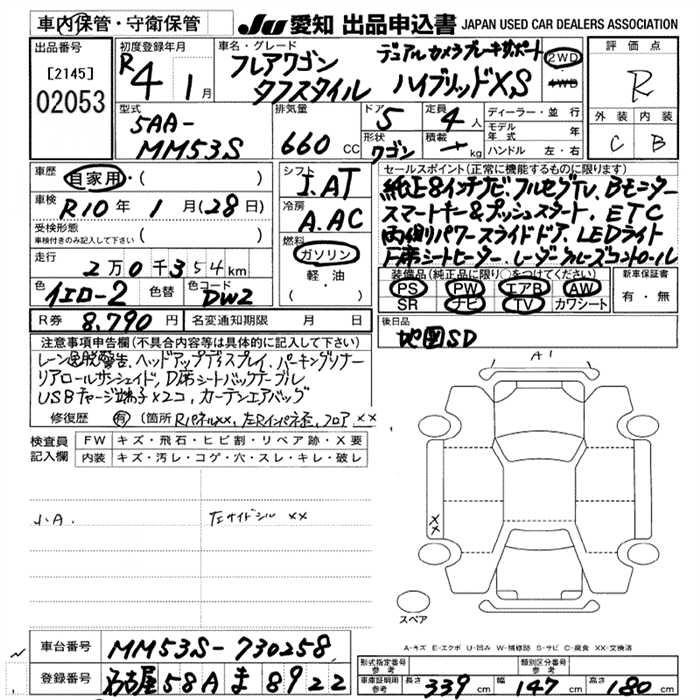 車内保管・守衛保管
JU 愛知 出品申込書 JAPAN USED CAR DEALERS ASSOCIATION
出品番号
[2145]
02053
初度登録年月
R4 1月
車名・グレード
デュアルカメラブレーキサポート
フレアワゴン
タフスタイル ハイブリッドXS
2WD
4WD
評価点
R
外装 内装
C B
型式
5AA-
MM53S
排気量
660 CC
ドア
5
形状
ワゴン
定員
4人
積載
kg
ディーラー・並行
モデル年式 年
ハンドル 左・右
車歴
自家用・( )
車検
R10年 1月(28日)
受検形態
車検付きのみ記入して下さい ( )
走行
2万0千354km
色
イエロー2
色替
色コード
DW2
シフト
I.AT
冷房
A.AC
燃料
ガソリン
軽・油
( )
セールスポイント(正常に機能するものに限ります)
純正8インチナビ.フルセグTV.Bモニター
スマートキー&プッシュスタート.ETC
両側パワースライドドア.LEDライト
F席シートヒーター.レーダークルーズコントロール
装備品(純正品に限り○をつけてください)
PS PW エアB AW
SR ナビ TV カワシート
新車保証書
有・無
R券 8,790円
名変通知期限 月 日
後日品
地図SD
注意事項申告欄(不具合内容等は具体的に記入して下さい)
レーン逸脱警告.ヘッドアップディスプレイ.パーキングソナー
リアロールサンシェイド.D席シートバックテーブル
USBチャージ端子×2コ.カーテンエアバッグ
修復歴 有 (箇所 RパネルXX.左Rインパネ歪.フロアXX
検査員記入欄
FW キズ・飛石・ヒビ割・リペア跡・X要
内装 キズ・汚レ・コゲ・穴・スレ・キレ・破レ
J.A. 左サイドシル XX
A1
XX
スペア
A-キズ E-エクボ U-凹み W-補修跡 S-サビ C-腐食 XX-交換済
車台番号 MM53S-730258
登録番号 名古屋 58A ま 8922
形式指定番号 参考
類別区分番号 参考
車庫証明用参考 長さ 339cm 幅 147cm 高さ 180cm